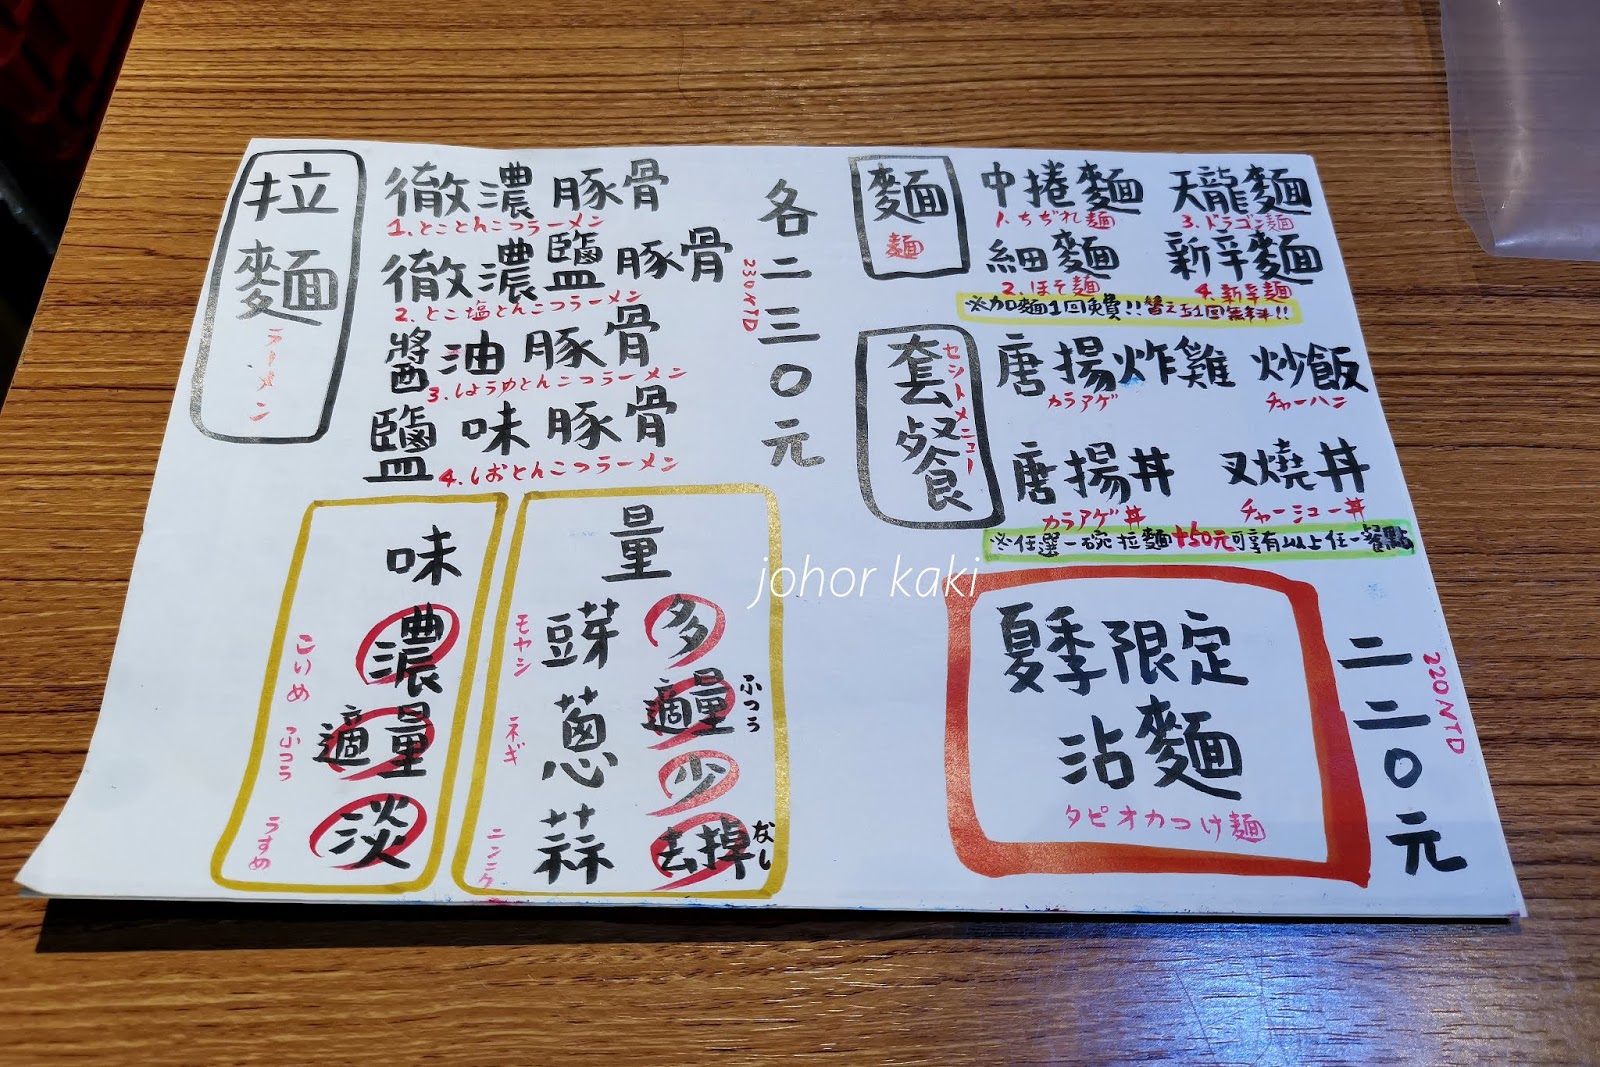 拉麵
ラーメン
徹濃豚骨
1.とことんこつラーメン
徹濃鹽豚骨
2.とこ塩とんこつラーメン
醬油豚骨
3.しょうゆとんこつラーメン
鹽味豚骨
4.しおとんこつラーメン
各二三〇元
230NTD
麵
麺
中捲麵
1.ちぢれ麺
天龍麵
3.ドラゴン麺
細麵
2.ほそ麺
新辛麵
4.新辛麺
※加麵1回免費!!替え玉1回無料!!
套餐
セットメニュー
唐揚炸雞
カラアゲ
炒飯
チャーハン
唐揚丼
カラアゲ丼
叉燒丼
チャーシュー丼
※任選一碗拉麵+50元可享有以上任一餐點
味
濃
こいめ
適量
ふつう
淡
うすめ
量
豆芽
モヤシ
蔥
ネギ
蒜
ニンニク
多
適量
ふつう
少
去掉
なし
夏季限定
沾麵
タピオカつけ麺
二二〇元
220NTD
johor kaki